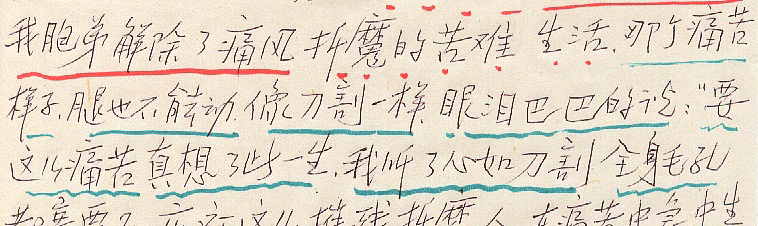 我胞弟解除了痛风折魔的苦难生活,那个痛苦
样子,腿也不能动,像刀割一样,眼泪巴巴的说:"要
这么痛苦真想了此一生,我听了心如刀割全身毛孔
这么摧残折磨人在痛苦中急中生